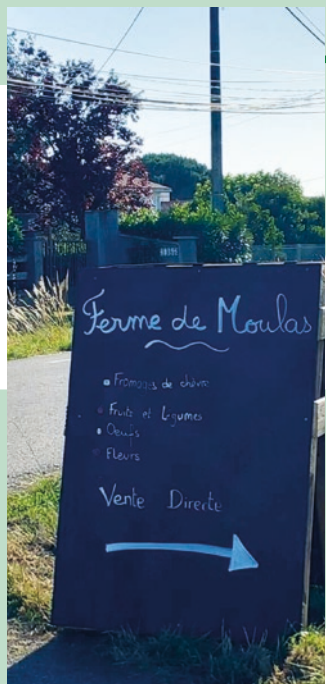 Ferme de Moulas
Fromages de chèvre
Fruits et Légumes
Oeufs
Fleurs
Vente Directe